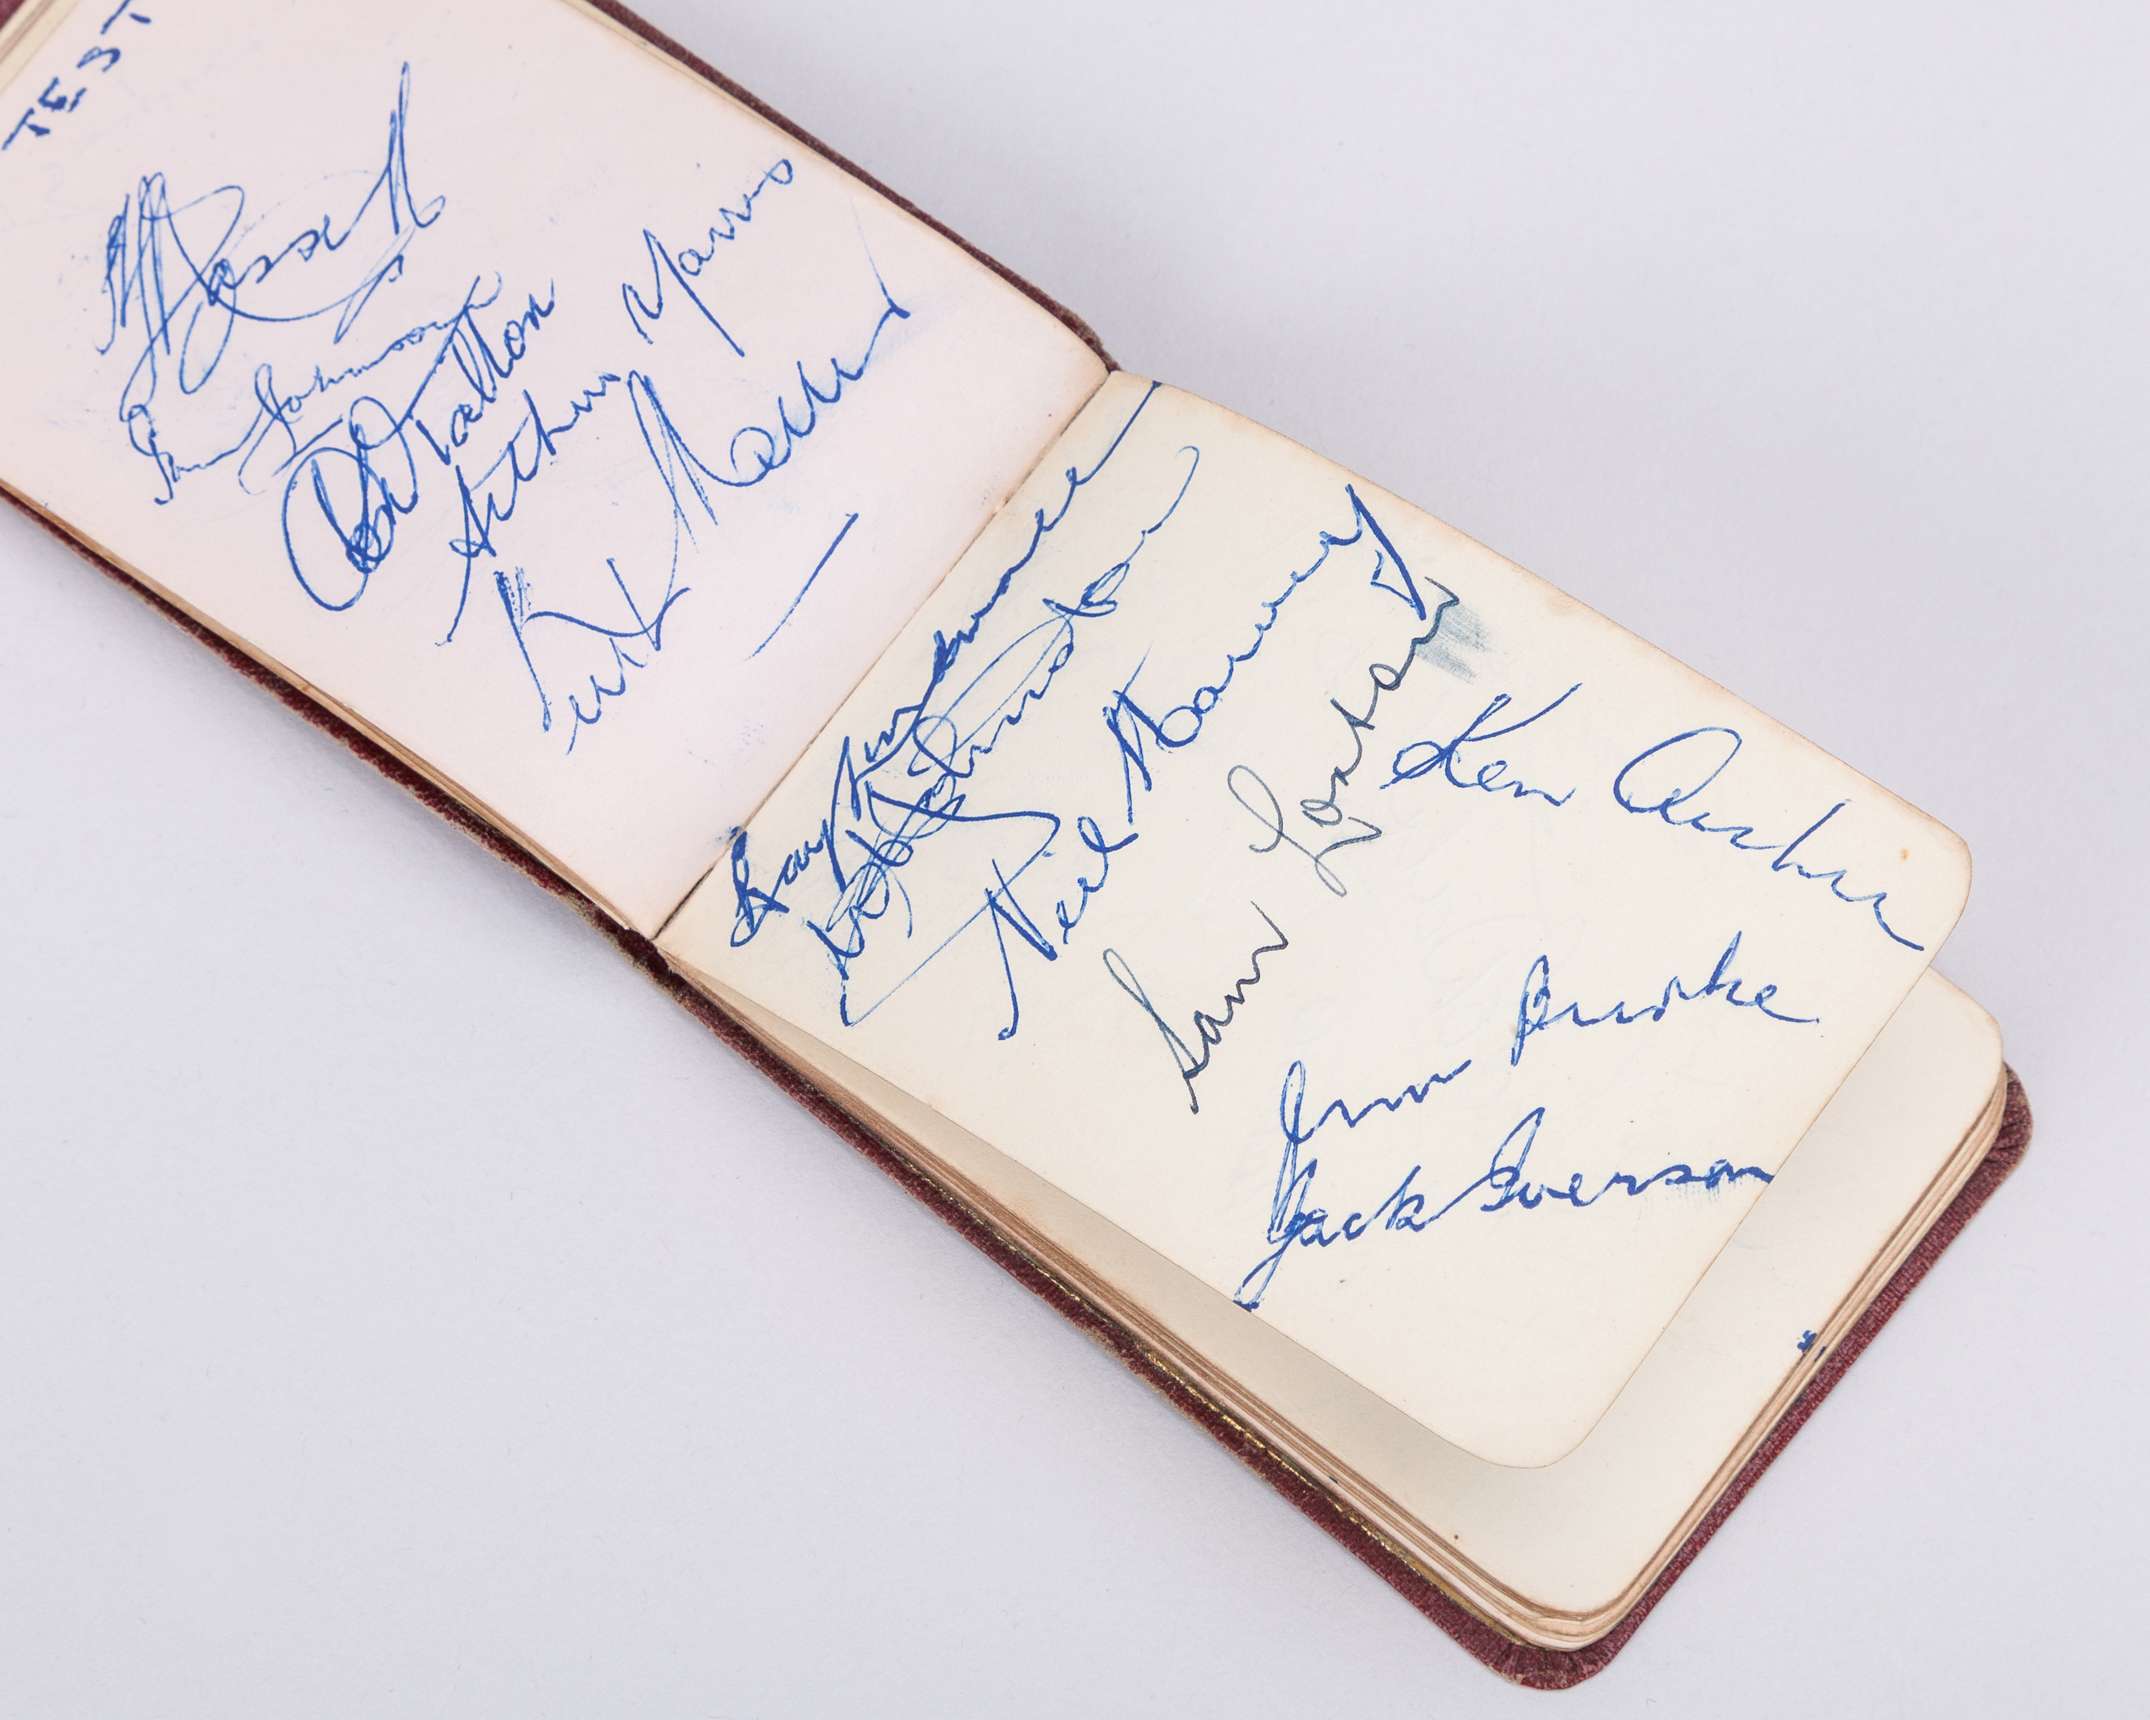 TEST
A L Hassett
Ian Johnson
Don Tallon
Arthur Morris
Keith Miller
Ray Lindwall
W A Johnston
Neil Harvey
Sam Loxton
Ken Archer
Jim Burke
Jack Iverson